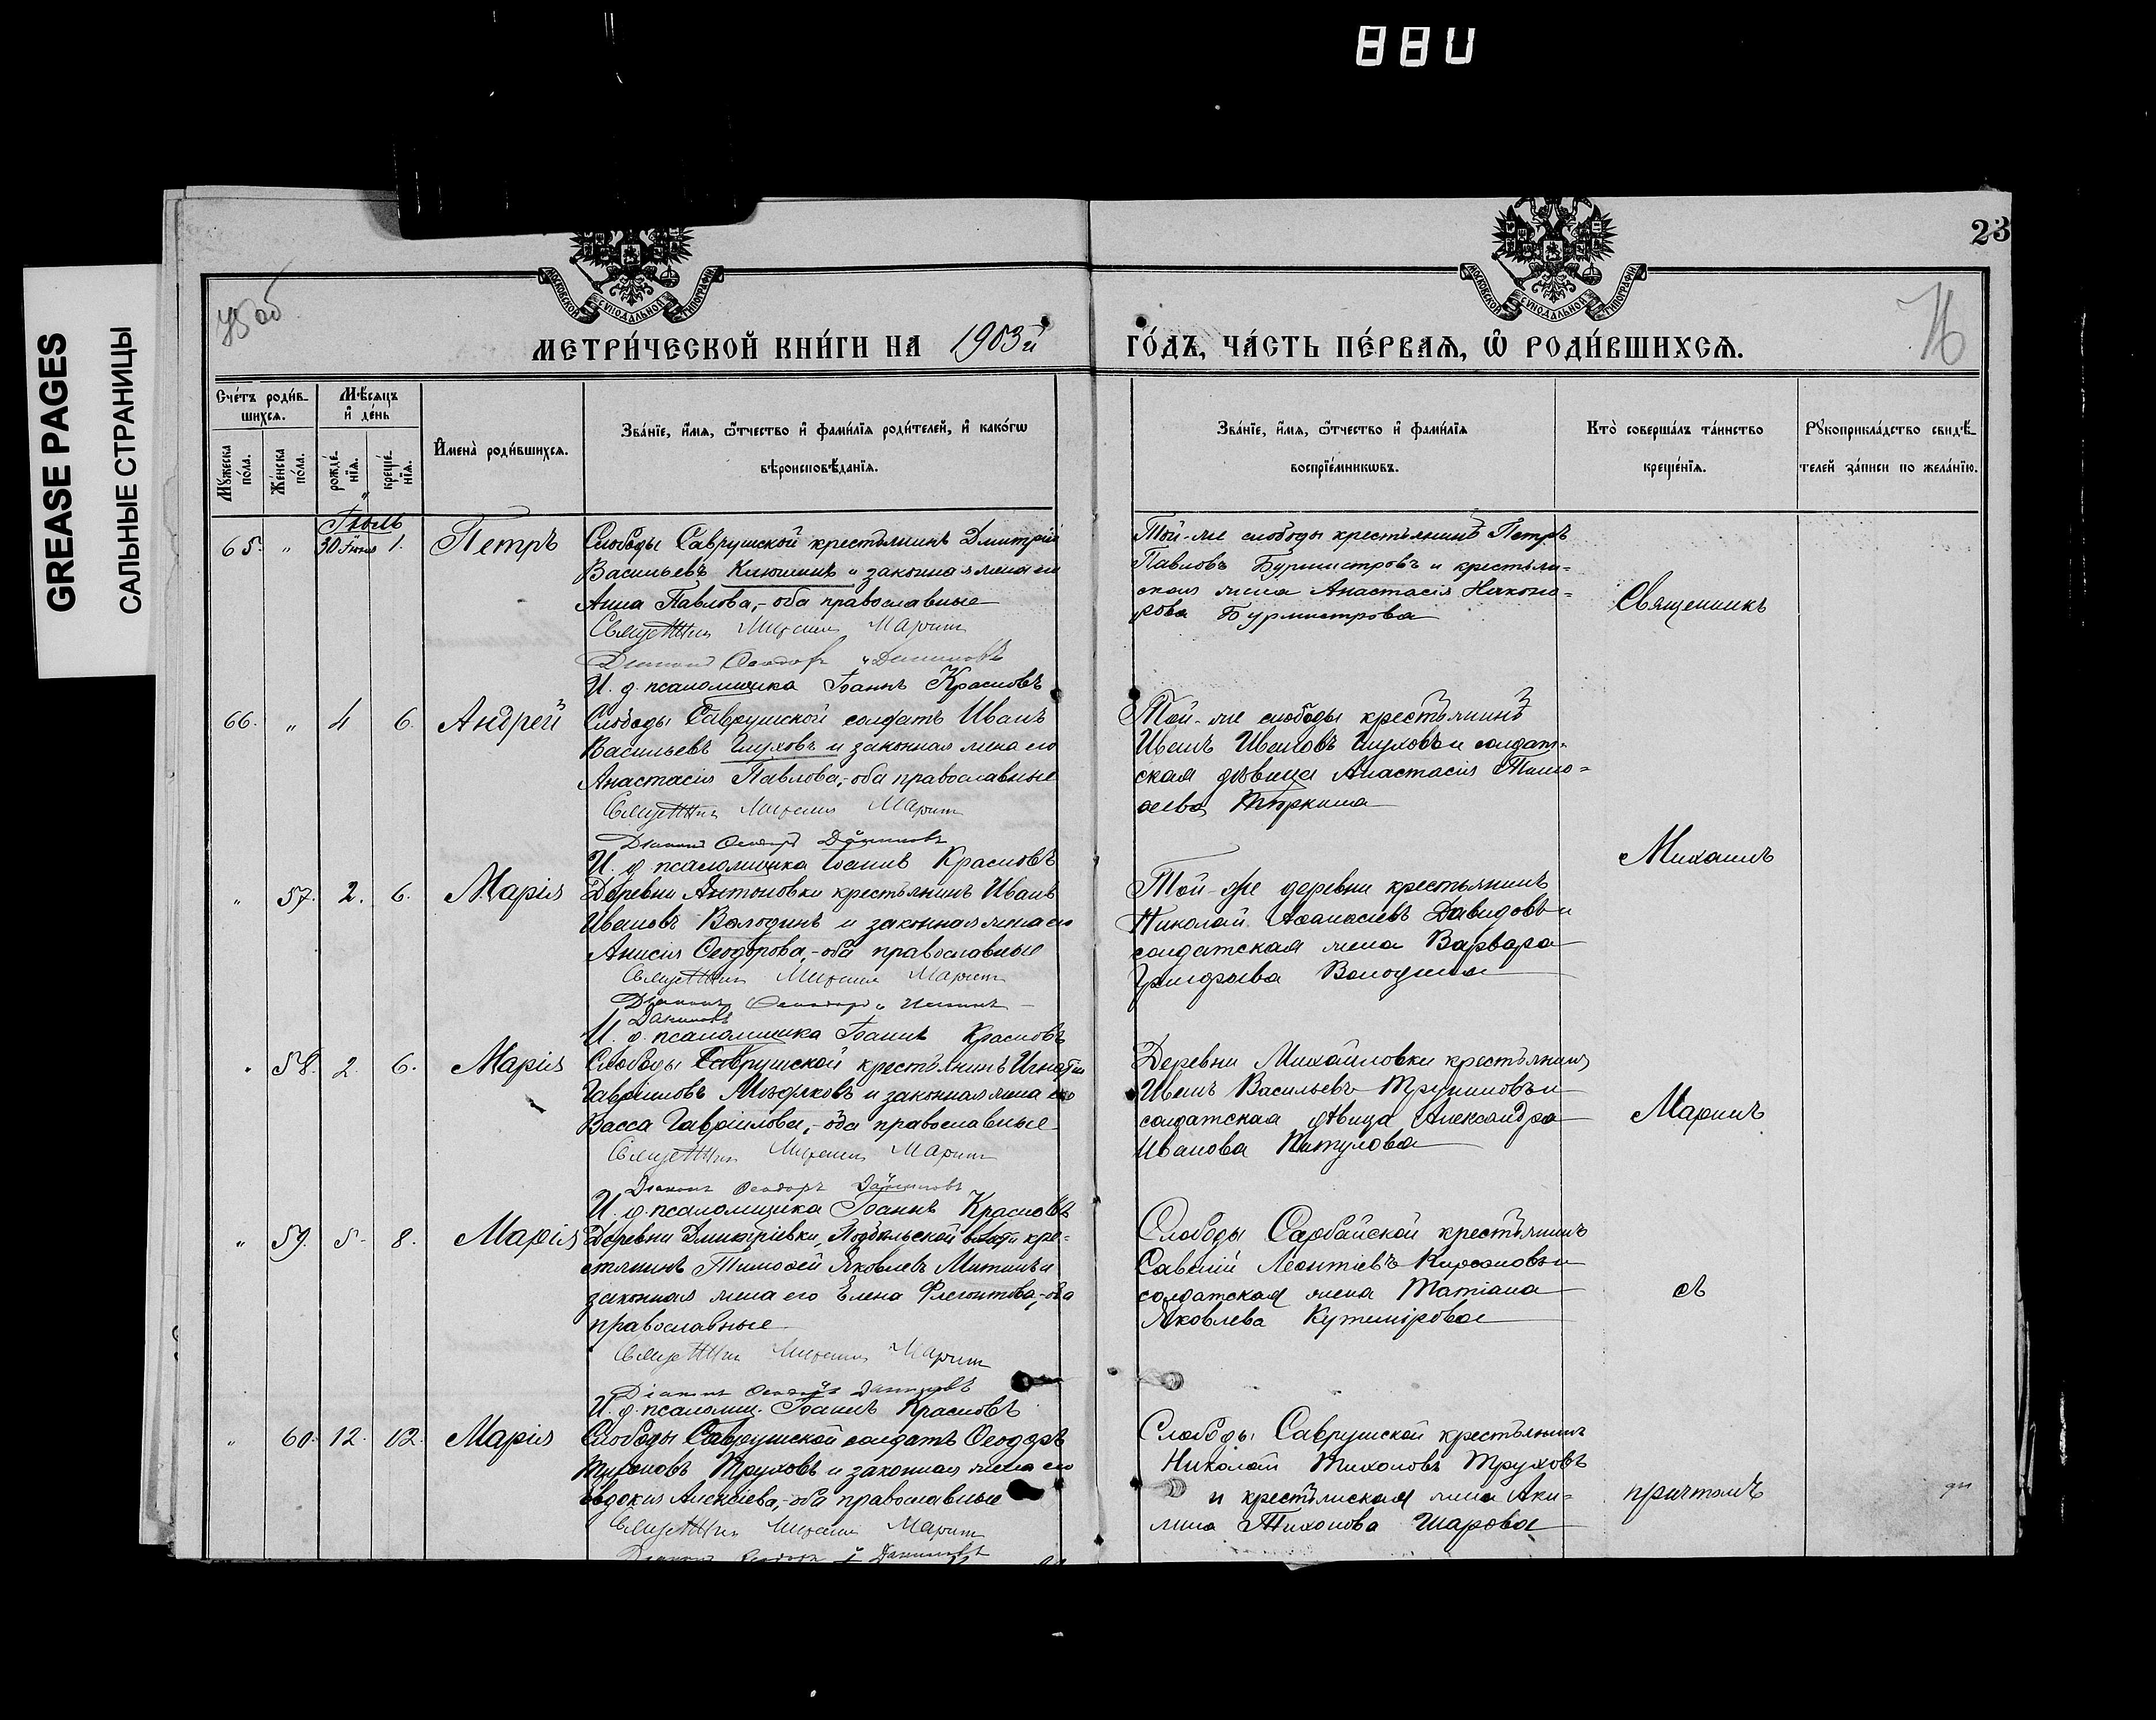 88U
GREASE PAGES
САЛЬНЫЕ СТРАНИЦЫ
23
МОСКОВСКОЙ СѴНОДАЛЬНОЙ ТИПОГРАФІИ
МОСКОВСКОЙ СѴНОДАЛЬНОЙ ТИПОГРАФІИ
76
МЕТРИ́ЧЕСКОЙ КНИ́ГИ НА 1903й ГО́ДЪ, ЧА́СТЬ ПЕ́РВАѦ, Ѡ РОДИ́ВШИХСѦ.
Сче́тъ роди́вшихсѧ.
Мѣ́сяцъ и де́нь
Мꙋ́жеска по́ла.
Же́нска по́ла.
рожде́нїѧ.
креще́нїѧ.
Имена̀ роди́вшихсѧ.
Зва́нїе, и́мѧ, ѻ́тчество и фами́лїѧ роди́телей, и како́гѡ
вѣроисповѣ́данїѧ.
Зва́нїе, и́мѧ, ѻ́тчество и фами́лїѧ
воспрїе́мникѡвъ.
Кто̀ соверша́лъ та́инство
креще́нїѧ.
Рꙋкоприкла́дство свидѣ́телей за́писи по жела́нїю.
Іюль
65. " 30 Іюня 1. Петръ
Слободы Саврушской крестьянинъ Дмитрій
Васильевъ Клюшинъ и законная жена его
Анна Павлова,- оба православные
Священникъ Михаилъ Маринъ
Діаконъ Ѳеодоръ Даниловъ
И. д. псаломщика Іоаннъ Красновъ
Той-же слободы крестьянинъ Петръ
Павловъ Бурмистровъ и крестьян-
ская жена Анастасія Никоно-
рова Бурмистрова
Священникъ
66. " 4 6. Андрей
Слободы Саврушской солдатъ Иванъ
Васильевъ Глуховъ и законная жена его
Анастасія Павлова,-оба православные
Священникъ Михаилъ Маринъ
Діаконъ Ѳеодоръ Даниловъ
И. д. псаломщика Іоаннъ Красновъ
Той-же слободы крестьянинъ
Иванъ Ивановъ Глуховъ и солдат-
ская дѣвица Анастасія Тимо-
ѳеева
Михаилъ
" 57. 2. 6. Марія
Деревни Антоновки крестьянинъ Иванъ
Ивановъ Володинъ и законная жена его
Анисія Ѳеодорова,-оба православные
Священникъ Михаилъ Маринъ
Діаконъ Ѳеодоръ
Даниловъ
И. д. псаломщика Іоаннъ Красновъ
Той-же деревни крестьянинъ
Николай Аѳанасіевъ Давидовъ и
солдатская жена Варвара
Григорьева Володина
" 58. 2. 6. Марія
Слободы Саврушской крестьянинъ Игнатій
Гавріиловъ Можаковъ и законная жена его
Васса Гавріилова,-оба православные
Священникъ Михаилъ Маринъ
Діаконъ Ѳеодоръ Даниловъ
И. д. псаломщика Іоаннъ Красновъ
Деревни Михайловки крестьянинъ
Иванъ Васильевъ Труниловъ и
солдатская дѣвица Александра
Иванова
Маринъ
" 59. 5. 8. Марія
Деревни Дмитріевки, Подбѣльской волости кре-
стьянинъ Тимоѳей Яковлевъ Митинъ и
законная жена его Елена Флегонтова,-оба
православные
Священникъ Михаилъ Маринъ
Діаконъ Ѳеодоръ Даниловъ
И. д. псаломщ. Іоаннъ Красновъ
Слободы Сарбайской крестьянинъ
Савелій Леонтіевъ Кирсановъ и
солдатская жена Татіана
Яковлева Кутемірова
съ
" 60. 12. 12. Марія
Слободы Саврушской солдатъ Ѳеодоръ
Труховъ и законная жена его
Евдокія Алексіева,-оба православные
Священникъ Михаилъ Маринъ
Діаконъ Ѳеодоръ Даниловъ
Слободы Саврушской крестьянинъ
Николай Тихоновъ Труховъ
и крестьянская жена Аки-
лина Тихонова Шарова
причтомъ